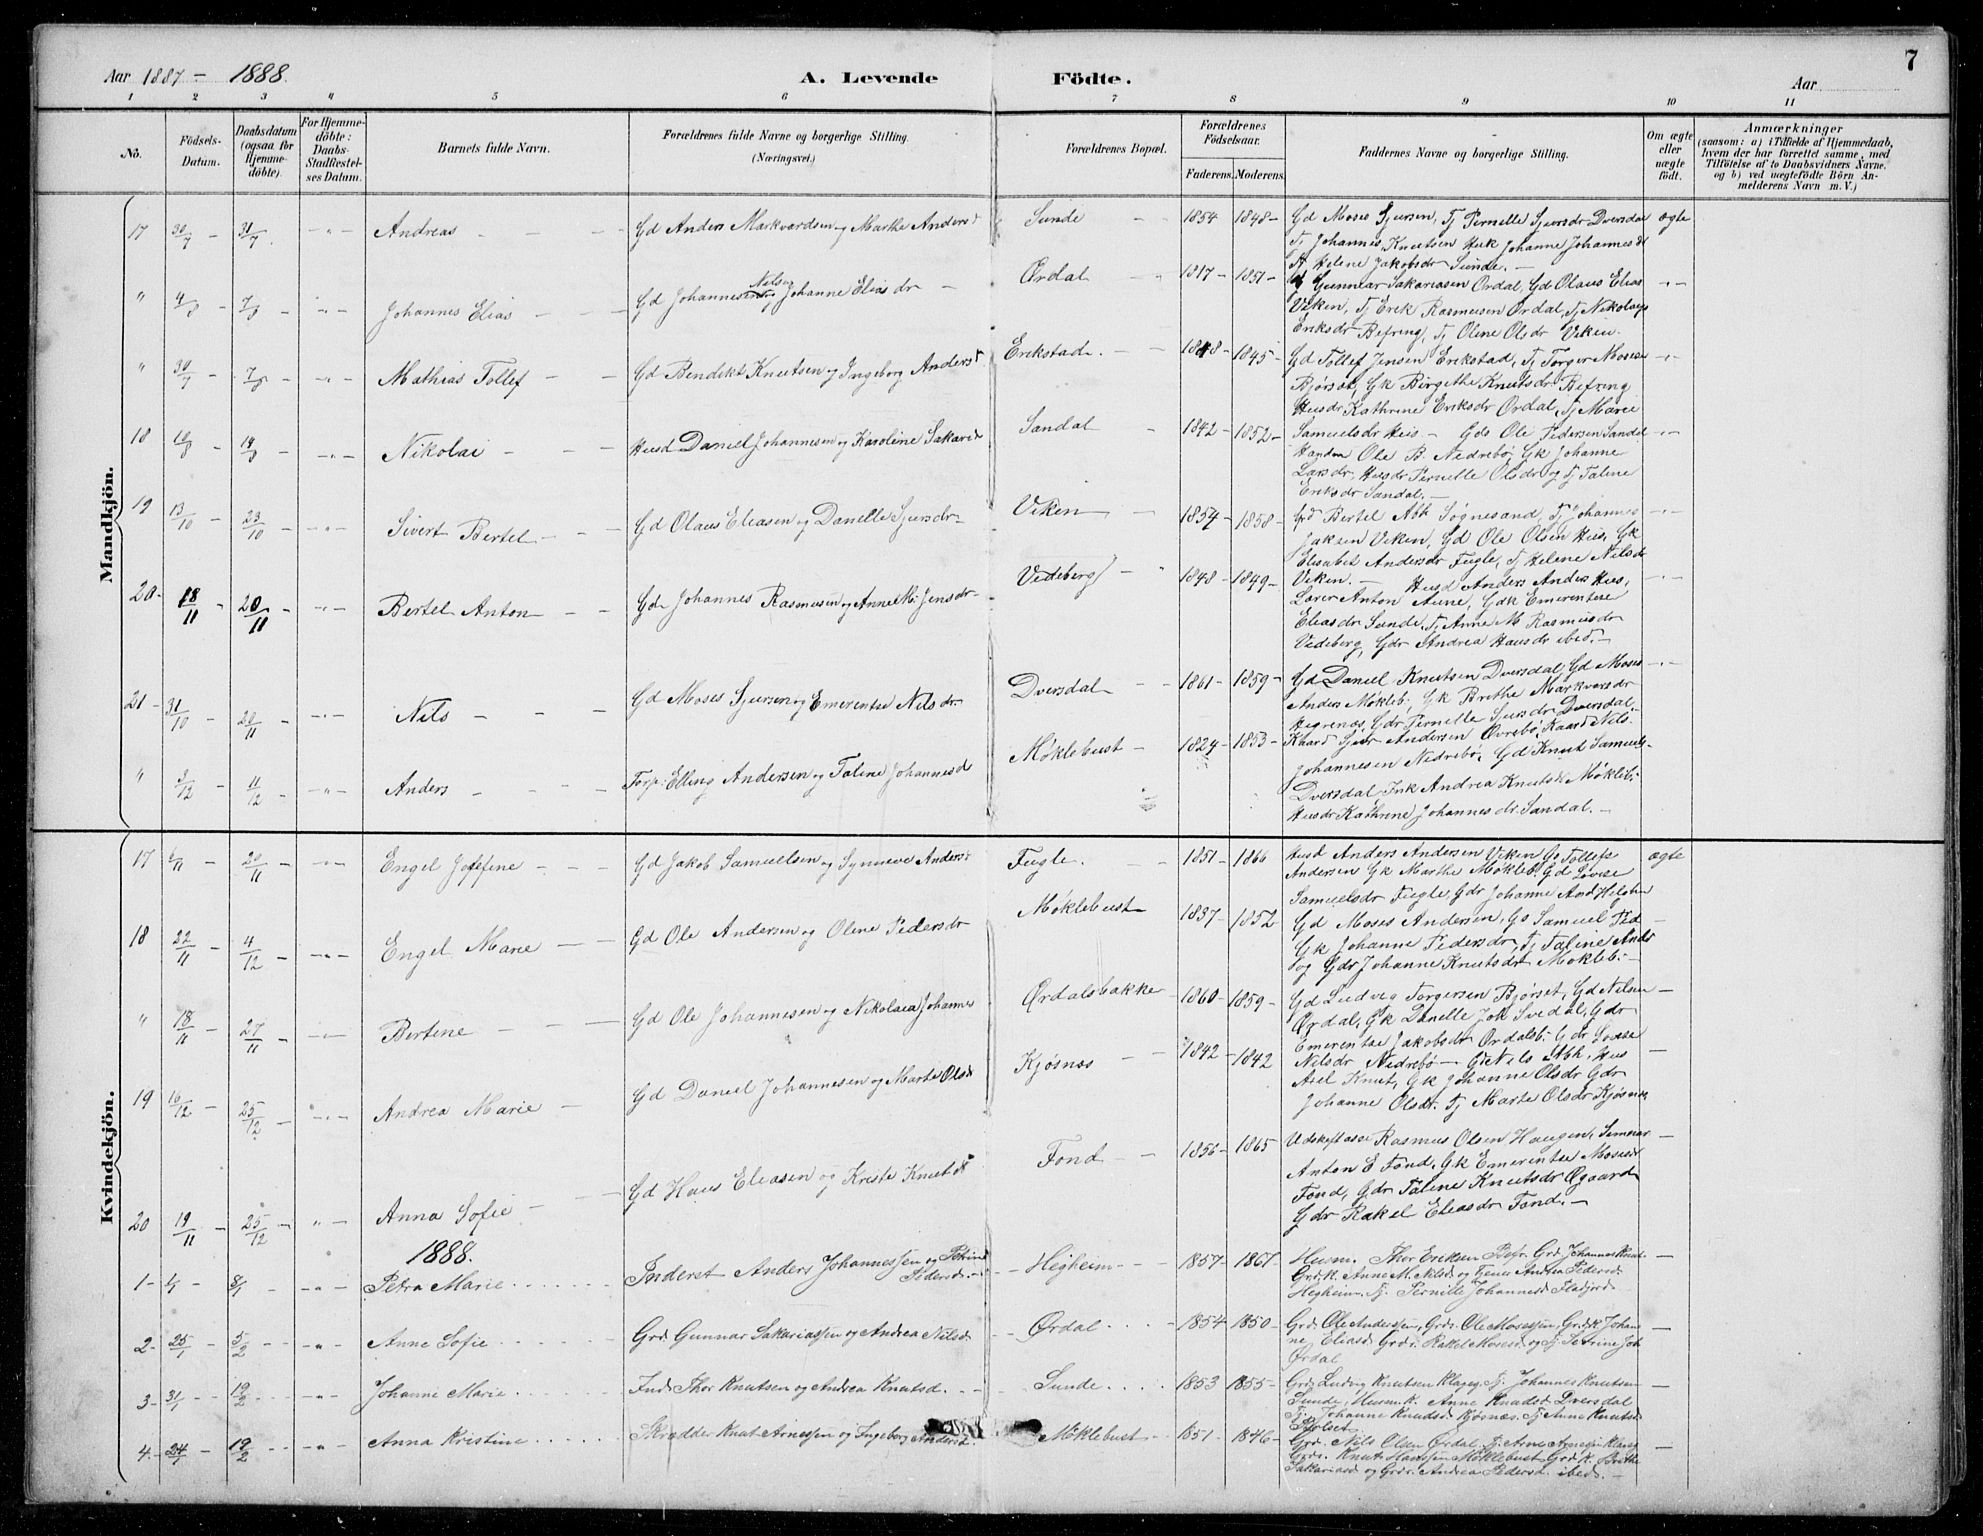 7
Aar 1887 - 1888. A. Levende Födte. Aar
1 2 3 4 5 6 7 8 9 10 11
No. Födsels-Datum. Daabsdatum (ogsaa for Hjemme-döbte). For Hjemme-döbte: Daabs-Stadfæstel-ses Datum. Barnets fulde Navn. Forældrenes fulde Navne og borgerlige Stilling. (Næringsvei.) Forældrenes Bopæl. Forældrenes Födselsaar. Faderens. Moderens. Faddernes Navne og borgerlige Stilling. Om ægte eller uægte födt. Anmærkninger (saasom: a) i Tilfælde af Hjemmedaab, hvem der har forrettet samme, med Tilföielse af to Daabsvidners Navne, og b) ved uægtefödte Börn An-melderens Navn m. V.)
Mandkjön.
17 30/7 - 31/7 - " - Andreas - - - Gd Anders Markvardsen og Marthe Andersd Sunde - - 1854 1848 - Gd Moses Sjursen, Tj Pernelle Sjursdr Dversdal ægte
Tj Johannes Knutsen Huk Johanne Johannesd
Helene Jakobsdr Sunde. -
" 4/8 - 7/8 - " - Johannes Elias - - - Gd Johannes Nilsen og Johanne Eliasdr - Ørdal - " 1817 - 1851 - Gunnar Sakariasen Ørdal, Gd Olaus Elias - " -
Viken, Tj Erik Rasmusen Ørdal, Tj Nikolaya
Eriksdr Befring, Tj Oline Olsdr Viken.
" 30/7 - 7/8 - - " - Mathias Tollef - - Gd Bendikt Knutsen og Ingeborg Andersd Erikstad. - - 1848 - 1845 - Gd Tollef Jensen Erikstad, Tj Torger Moses - " -
Bjørset, Gk Birgithe Knutsdr Befring
Husdr Kathrine Eriksdr Ørdal, Tj Marie
18 18/8 - 19/8 - - " - Nikolai - - - Husd Daniel Johannesen og Karoline Sakarid Sandal - 1842 - 1852 - Samuelsdr Hus - Gds Ole Pedersen Sandal - " -
Ole B. Nedrebø, Gk Johanne
Larsdr, Husdr Pernelle Olsdr og Tj Taline
Eriksdr Sandal. -
19 13/10 - 23/10 - - " - Sivert Bertel - - - Gd Olaus Eliasen og Danelle Sjursdr - Viken - 1854 - 1858 - Grd Bertel Abh Søgnesand, Tj Johannes - " -
Jaksen Viken, Gd Ole Olsen Hus, Gk
Elisabet Andersdr Fugle, Tj Helene Nilsdr
20 - 18/11 - 20/11 - - " - Bertel Anton - - Gd Johannes Rasmusen og Anne M. Jensdr - Vedeberg - " 1848 - 1849 - Viken. - Husd Anders Anders Hus, - " -
Lærer Anton Aune, Gdk Emerentse
Eliasdr Sunde, Tj Anne M Rasmusdr
Vedeberg, Gdr Andrea Hansdr ibed. -
21 - 31/10 - 20/11 - - " - Nils - - - Gd Moses Sjursen og Emerentse Nilsdr Dversdal - - 1861 - 1859 - Gd Daniel Knutsen Dversdal, Gd Moses - " -
Anders Mökleb., Gk Brithe Markvarsdr
Hegrenes, Gdr Pernelle Sjursdr Dversdal,
" 3/12 - 11/12 - - " - Anders - - - - Torp: Elling Andersen og Taline Johannesd Møklebust - 1824 - 1853 - Kaard Sjur Andersen Øvrebø, Kaard Nils.
Johannesen Nedrebø, Gd Knut Samuels-
Dversdal Ink Andrea Knutsdr Møkleb:
Husdr Kathrine Johannesdr. Sandal. -
Kvindekjön.
17 6/11 - 20/11 - - " - Engel Josefine - - - Gd Jakob Samuelsen og Synneve Andersd Fugle. - - 1851 - 1866 Husd Anders Andersen Viken Gs Tollefs ægte
Andersen Gk Marthe Møkleb., Gd Lovise
Samuelsdr Fugle, Gdr Johanne And Helgheim
18 22/11 - 4/12 - - " - Engel Marie - - Gd Ole Andersen og Oline Pedersdr Møklebust 1837 - 1852 Gd Moses Andersen, Gs Samuel Ped -
Gk Johanne Pedersdr, Tj Taline Ands
og Gdr Johanne Knutsdr Møkleb: -
" 18/11 - 27/11 - - " - Bertine - - - Gd Ole Johannesen og Nikolaia Johannes Ørdalsbakke - 1860 - 1859 - Gd Ludvig Torgersen Bjørset, Gd Nilsen -
Ørdal, Gk Danelle Jok Svedal, Gdr
Emerentse Jakobsdr Ørdalsb. Gdr Lovise
19 16/12 - 25/12 - - " - Andrea Marie - Gd Daniel Johannesen og Marte Olsd Kjøsnæs - - 1842 - 1842 Nilsdr Nedrebø - Gd Nils Abh. Hus -
Axel Knut, Gk Johanne Olsdr Gdr
Johanne Olsdr. Tj Marte Olsdr Kjøsnæs
20 19/11 - 25/12 - " - Anna Sofie - - Gd Hans Eliasen og Kriste Knutsd Fond - - 1856 - 1865 Rasmus Olsen Haugen, Seminar -
Anton E Fond, Gk Emerentse Mosesdr
Fond, Gdr Taline Knutsdr Øgaard
Gdr Rakel Eliasdr Fond. -
1888.
1 - 4/1 - 8/1 - - " - Petra Marie ..... Inderst Anders Johannessen og Petrine Pedersd. - - Hegheim - - 1857 - 1861 Husm. Thor Eriksen Befr. Grd Johannes Knut -
Grdk. Anne M. Nilsd og Tjener Andrea Pedersd
Hegheim, Tj. Pernille Johannesd Fladfjord.
2 - 25/1 - 5/2 - - " - Anne Sofie - Grd Gunnar Sakariassen og Andrea Nilsd - - Ørdal .... 1854 1850 - Grd. Ole Anderssen, Grds Ole Mosessen, Grdk Johan -
ne Eliasd Grdr. Rakel Mosesd og Tj. Petrine Joh
Ørdal
3 - 31/1 - 19/2 - - " - Johanne Marie .... Ind. Thor Knutsen og Andrea Knutsd. - - - Sunde .... 1853 1855 - Grd. Ludvig Knutsen Klageg, Tj. Johannes Knutsen -
Sunde, Husm.k. Anne Knudsd Dversdal
Tj. Johanne Knudsd Kjøsnæs. Tj. Anne Knutsd
4 - 24/1 - 19/2 - - " - Anna Kristine ..... Skrædder Knut Arnessen og Ingeborg Andersd. Møklebust - 1851 - 1846 - Grd. Nils Olsen Ørdal, Tj. Arne Arnessen Klageg -
Grdr. Knut Hanssen Møklebust Grdk. Brithe
Sakariasd og Grdr. Andrea Pedersd. ibed. -